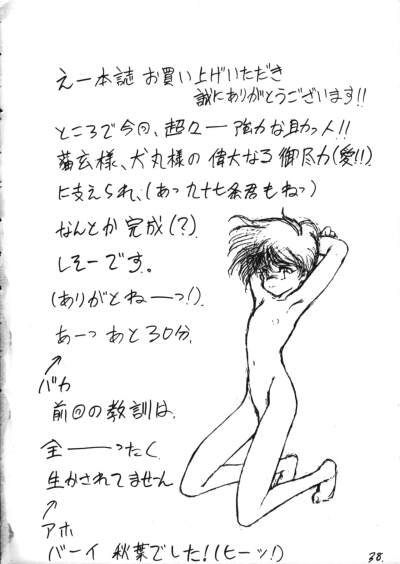 えー本誌 お買い上げいただき
誠にありがとうございます!!
ところで今回、超々ー強力な助っ人!!
猫玄様、犬丸様の 偉大なる 御尽力(愛!!)
に支えられ、(あっ 九十七条君もねっ)
なんとか 完成(?)
しそーです。
(ありがとねーーっ!).
あーっ あと30分.
バカ
前回の教訓は.
全ーーったく
生かされてません
アホ
バーイ 秋葉でした!(ヒーッ!)
38.